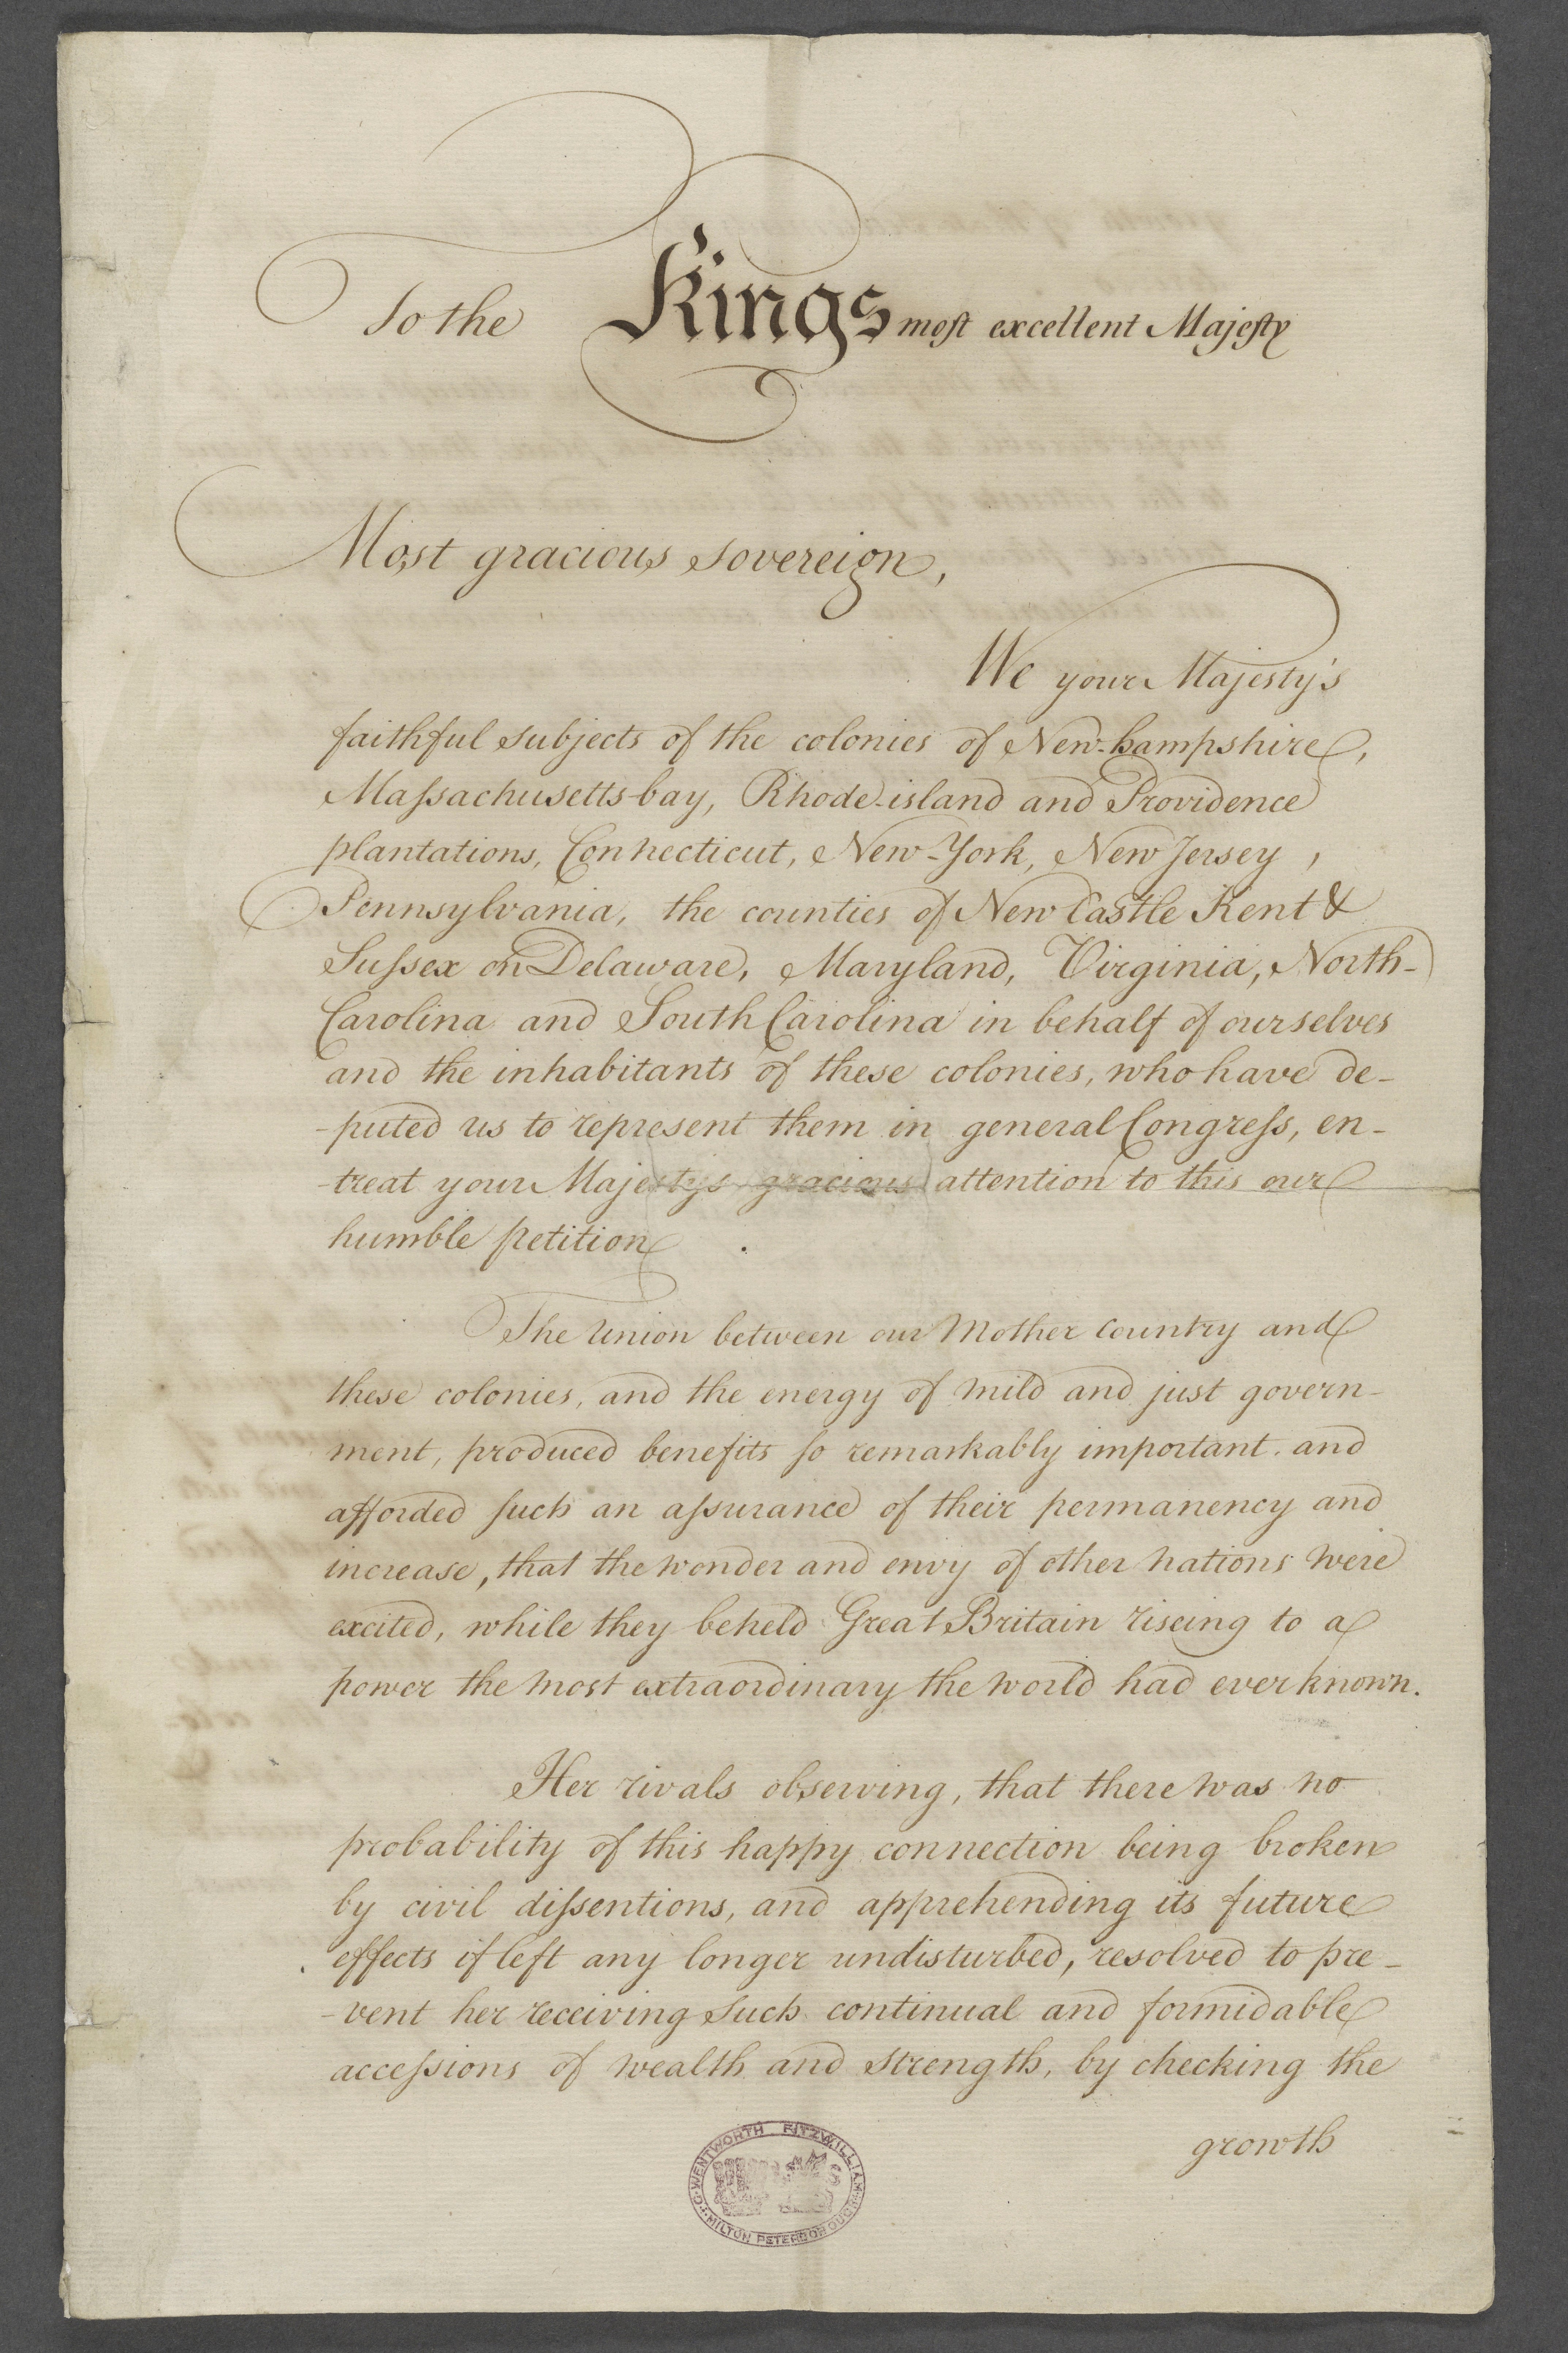 To the Kings most excellent Majesty
Most gracious sovereign,
We your Majesty's
faithful subjects of the colonies of New-hampshire,
Massachusetts-bay, Rhode-island and Providence
plantations, Connecticut, New-York, New Jersey,
Pennsylvania, the counties of New Castle Kent &
Sussex on Delaware, Maryland, Virginia, North-
Carolina and South Carolina in behalf of ourselves
and the inhabitants of these colonies, who have de-
-puted us to represent them in general Congress, en-
-treat your Majestys gracious attention to this our
humble petition.
The Union between our Mother Country and
these colonies, and the energy of mild and just govern-
ment, produced benefits so remarkably important. and
afforded such an assurance of their permanency and
increase, that the wonder and envy of other nations were
excited, while they beheld Great Britain riseing to a
power the most extraordinary the world had ever known.
Her rivals observing, that there was no
probability of this happy connection being broken
by civil dissentions, and apprehending its future
effects if left any longer undisturbed, resolved to pre-
-vent her receiving such continual and formidable
accessions of wealth and strength, by checking the
growth
WENTWORTH FITZWILLIAM
MILTON PETERBOROUGH